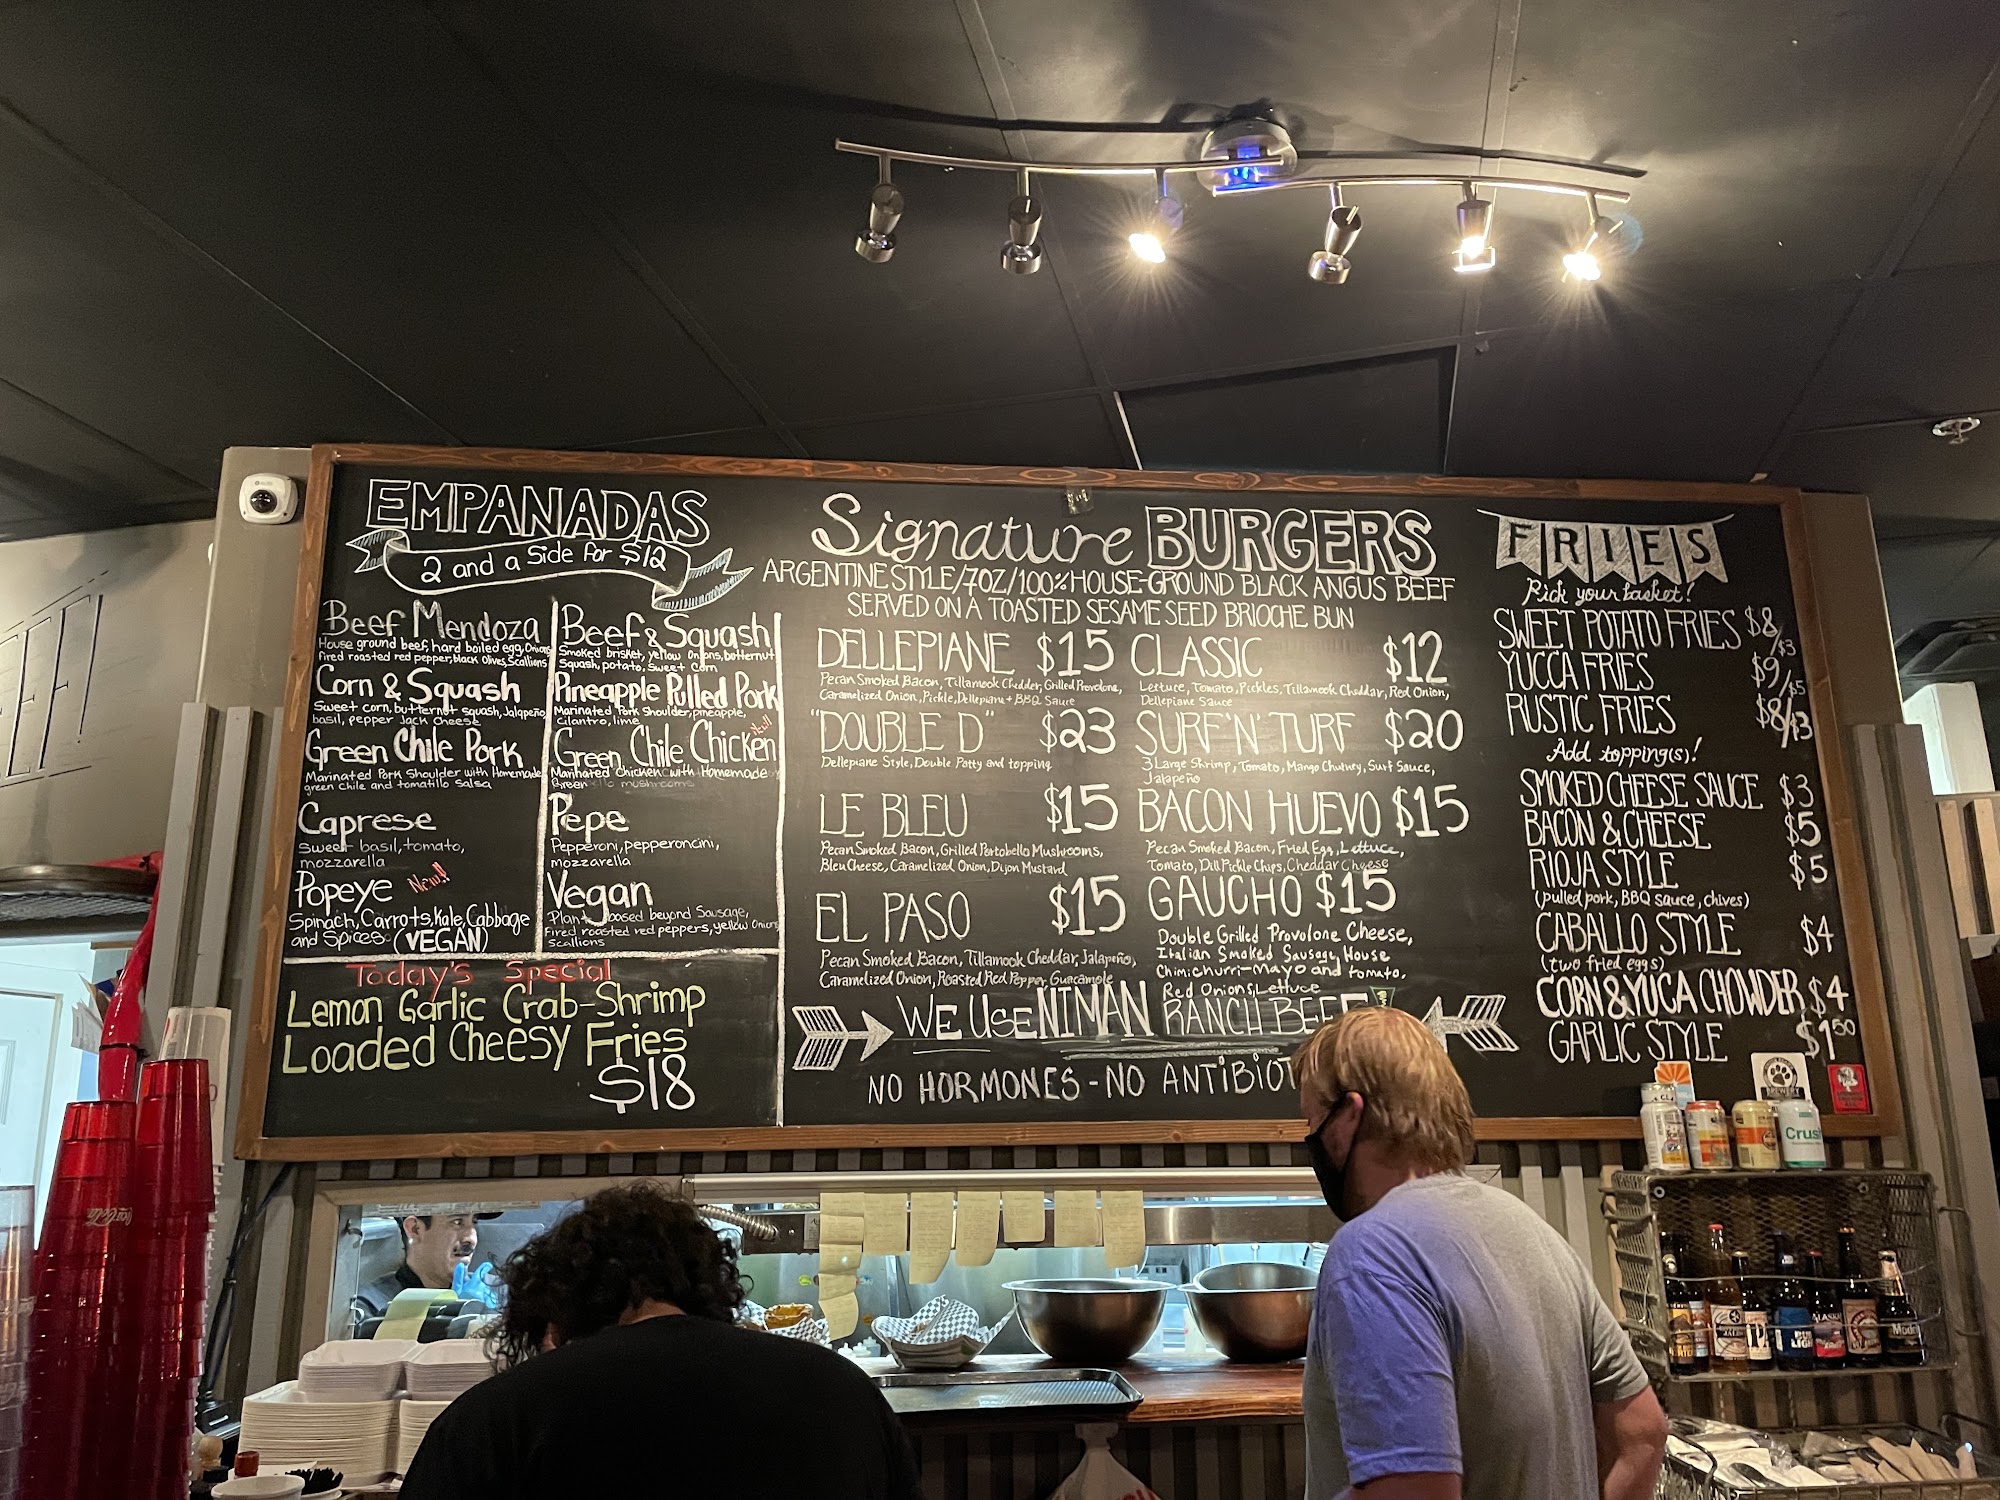 EMPANADAS
2 and a Side for $12
Beef Mendoza
House ground beef, hard boiled egg, Onions
fired roasted red pepper, black olives, Scallions
Corn & Squash
Sweet corn, butternut squash, Jalapeño
basil, pepper Jack Cheese
Green Chile Pork
Marinated Pork Shoulder with Homemade
green Chile and tomatillo Salsa
Caprese
Sweet basil, tomato,
mozzarella
Popeye New!!
Spinach, Carrots, Kale, Cabbage
and Spices (VEGAN)
Beef & Squash
Smoked brisket, yellow onions, butternut
Squash, potato, Sweet Corn
Pineapple Pulled Pork
Marinated Pork Shoulder, pineapple,
Cilantro, lime
New!!
Green Chile Chicken
Marinated Chicken with Homemade
Green mushrooms
Pepe
Pepperoni, pepperoncini,
mozzarella
Vegan
Plant based beyond Sausage,
Fired roasted red peppers, yellow Onions
Scallions
Today's Special
Lemon Garlic Crab-Shrimp
Loaded Cheesy Fries
$18
Signature BURGERS
ARGENTINE STYLE/7OZ/100% HOUSE-GROUND BLACK ANGUS BEEF
SERVED ON A TOASTED SESAME SEED BRIOCHE BUN
DELLEPIANE $15
Pecan Smoked Bacon, Tillamook Chedder, Grilled Provolone,
Caramelized Onion, Pickle, Dellepiane + BBQ Sauce
"DOUBLE D" $23
Dellepiane Style, Double Patty and topping
LE BLEU $15
Pecan Smoked Bacon, Grilled Portobello Mushrooms,
Bleu Cheese, Caramelized Onion, Dijon Mustard
EL PASO $15
Pecan Smoked Bacon, Tillamook Cheddar, Jalapeño,
Caramelized Onion, Roasted Red Pepper, Guacamole
CLASSIC $12
Lettuce, Tomato, Pickles, Tillamook Cheddar, Red Onion,
Dellepiane Sauce
SURF 'N' TURF $20
3 Large Shrimp, Tomato, Mango Chutney, Surf Sauce,
Jalapeño
BACON HUEVO $15
Pecan Smoked Bacon, Fried Egg, Lettuce,
Tomato, Dill Pickle Chips, Cheddar Cheese
GAUCHO $15
Double Grilled Provolone Cheese,
Italian Smoked Sausage, House
Chimichurri-Mayo and tomato.
Red Onions, Lettuce
WE USE NIMAN RANCH BEEF
NO HORMONES - NO ANTIBIOT
FRIES
Pick your basket!
SWEET POTATO FRIES $8/$3
YUCCA FRIES $9/$5
RUSTIC FRIES $8/$3
Add topping(s)!
SMOKED CHEESE SAUCE $3
BACON & CHEESE $5
RIOJA STYLE $5
(pulled pork, BBQ sauce, chives)
CABALLO STYLE $4
(two fried eggs)
CORN & YUCA CHOWDER $4
GARLIC STYLE $1.50
Crus
Coca-Cola